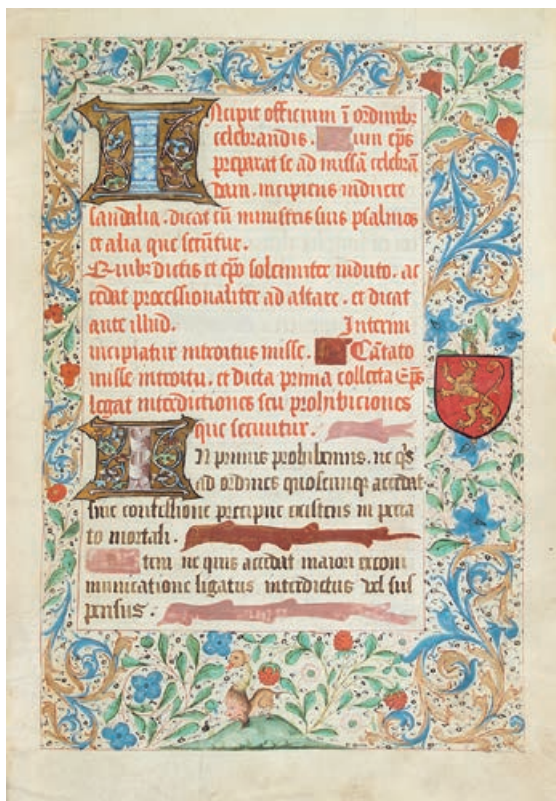 Incipit officium ī ordinibꝫ
celebrandis. um eps
preparat se ad missā celebrā
dam. incipiens induere
sandalia. dicat cū ministris suis psalmos
et alia que secūtur.
Quibꝫ dictis et epo solemniter induto. ac
cedat processionaliter ad altare. et dicat
ante illud. Interim
incipiatur introitus misse. Cātato
misse introitu. et dicta prima collecta Eps
legat interdictiones seu prohibiciones
que secuntur.
In primis prohibemus. ne qs
ad ordines quoscunqꝫ accedat
sine confessione precipue existens in pecca
to mortali.
tem ne quis accedat maiori excom
municatione ligatus interdictus vel sus
pensus.